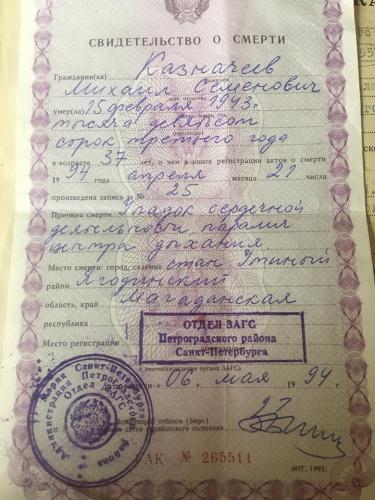 СВИДЕТЕЛЬСТВО О СМЕРТИ
Гражданин(ка) Казначеев
Михаил Семенович
умер(ла) 15 февраля 1943г.
тысяча девятьсот
сорок третьего года
в возрасте 37 лет, о чем в книге регистрации актов о смерти
19 94 года апреля месяца 21 числа
произведена запись за № 25
Причина смерти Упадок сердечной
деятельности, паралич
центра дыхания.
Место смерти: город, селение стан Утиный
район Ягодинский
область, край Магаданская
республика
Место регистрации
ОТДЕЛ ЗАГС
Петроградского района
Санкт-Петербурга
06 мая 19 94 г.
АК № 265511
МТГ. 1993.